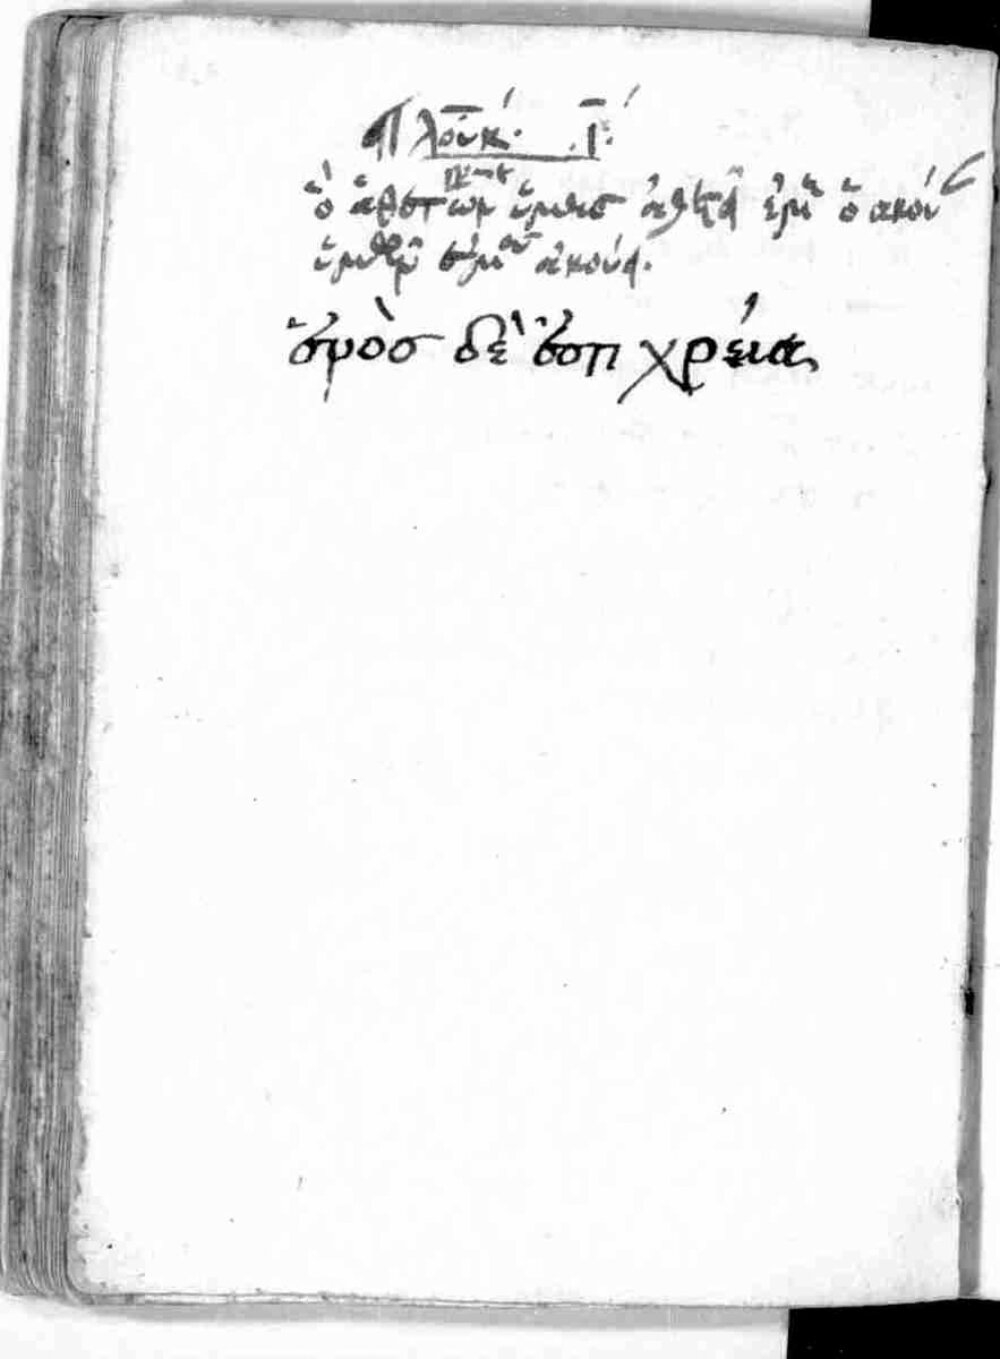 λουκ. ι.
ὁ ἀθετῶν ὑμᾶς ἀθετεῖ ἐμὲ ὁ ἀκού
ὑμῶν ἐμοῦ ἀκούει.
ἑνὸς δὲ ἐστι χρεία